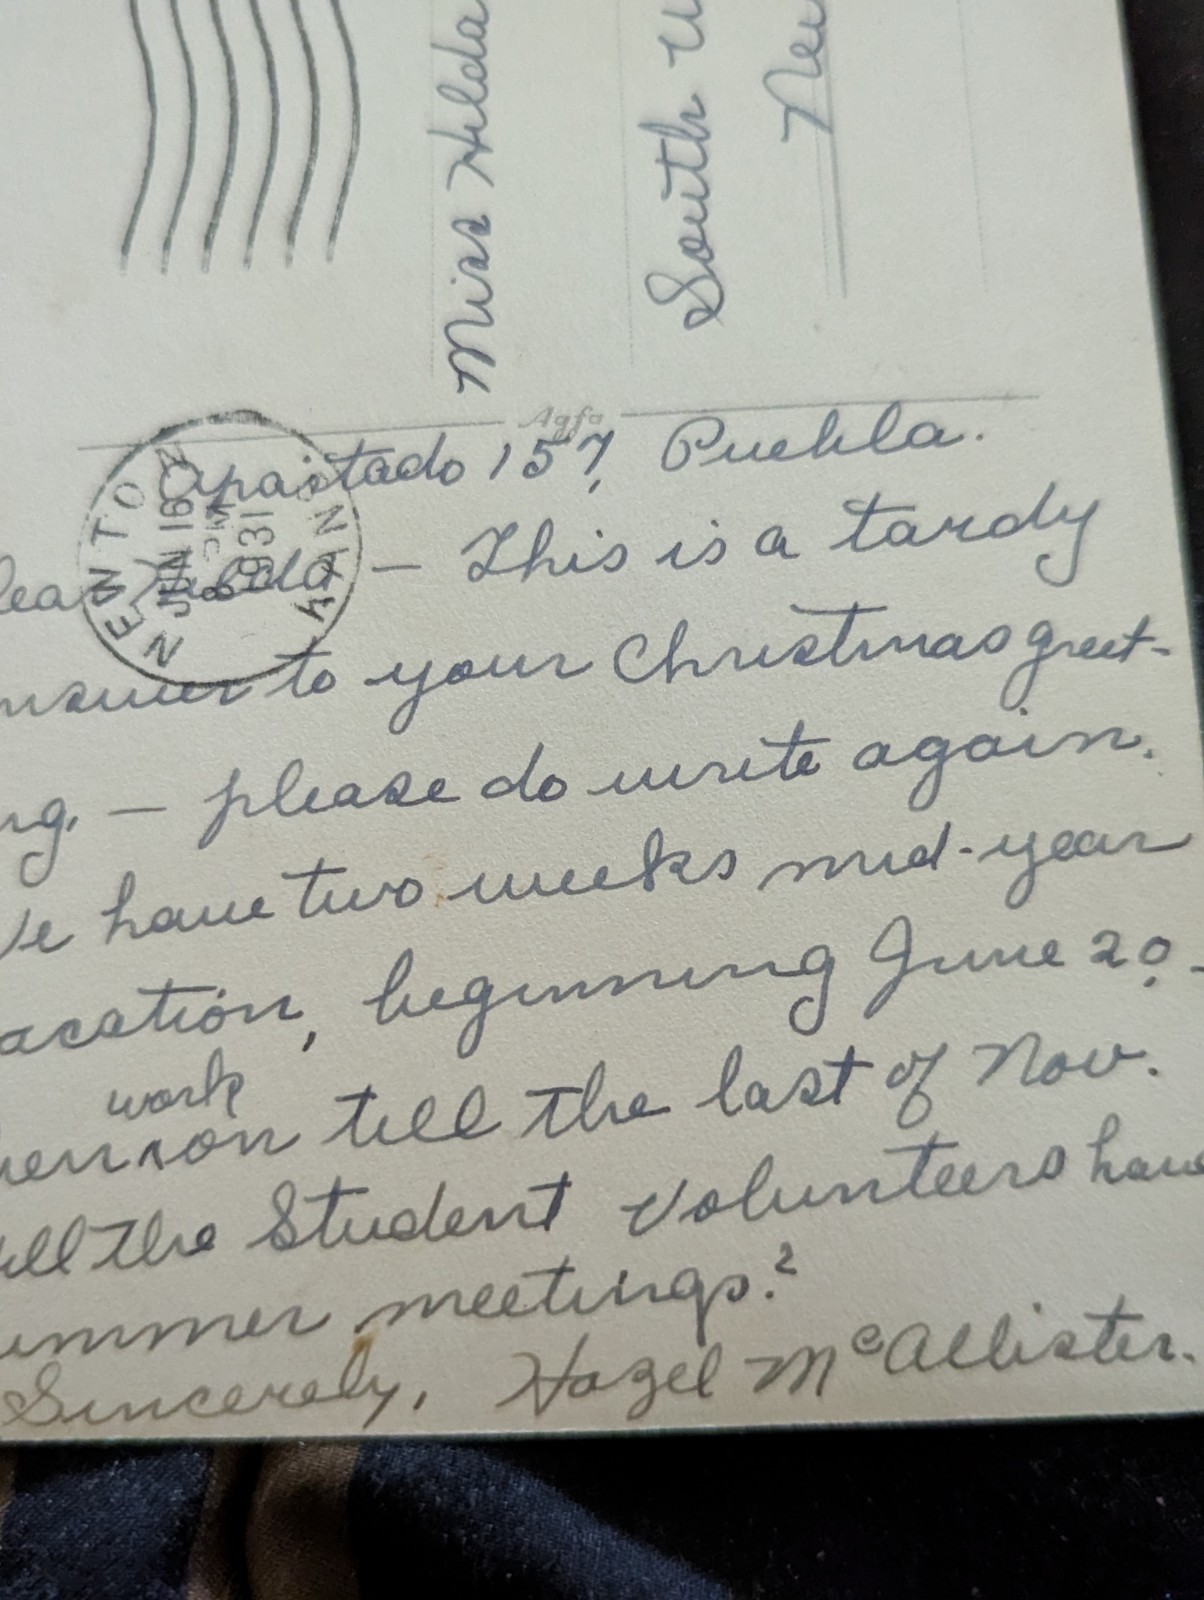 Miss Hilda
South
Agfa
NEWTON
JUN 16
PM
1931
KAN
Apartado 157, Puebla.
Dear Hilda — This is a tardy
answer to your Christmas greet-
ing. — please do write again.
We have two weeks mid-year
vacation, beginning June 20 -
then work on till the last of Nov.
Will the Student Volunteers have
summer meetings?
Sincerely, Hazel McAllister.